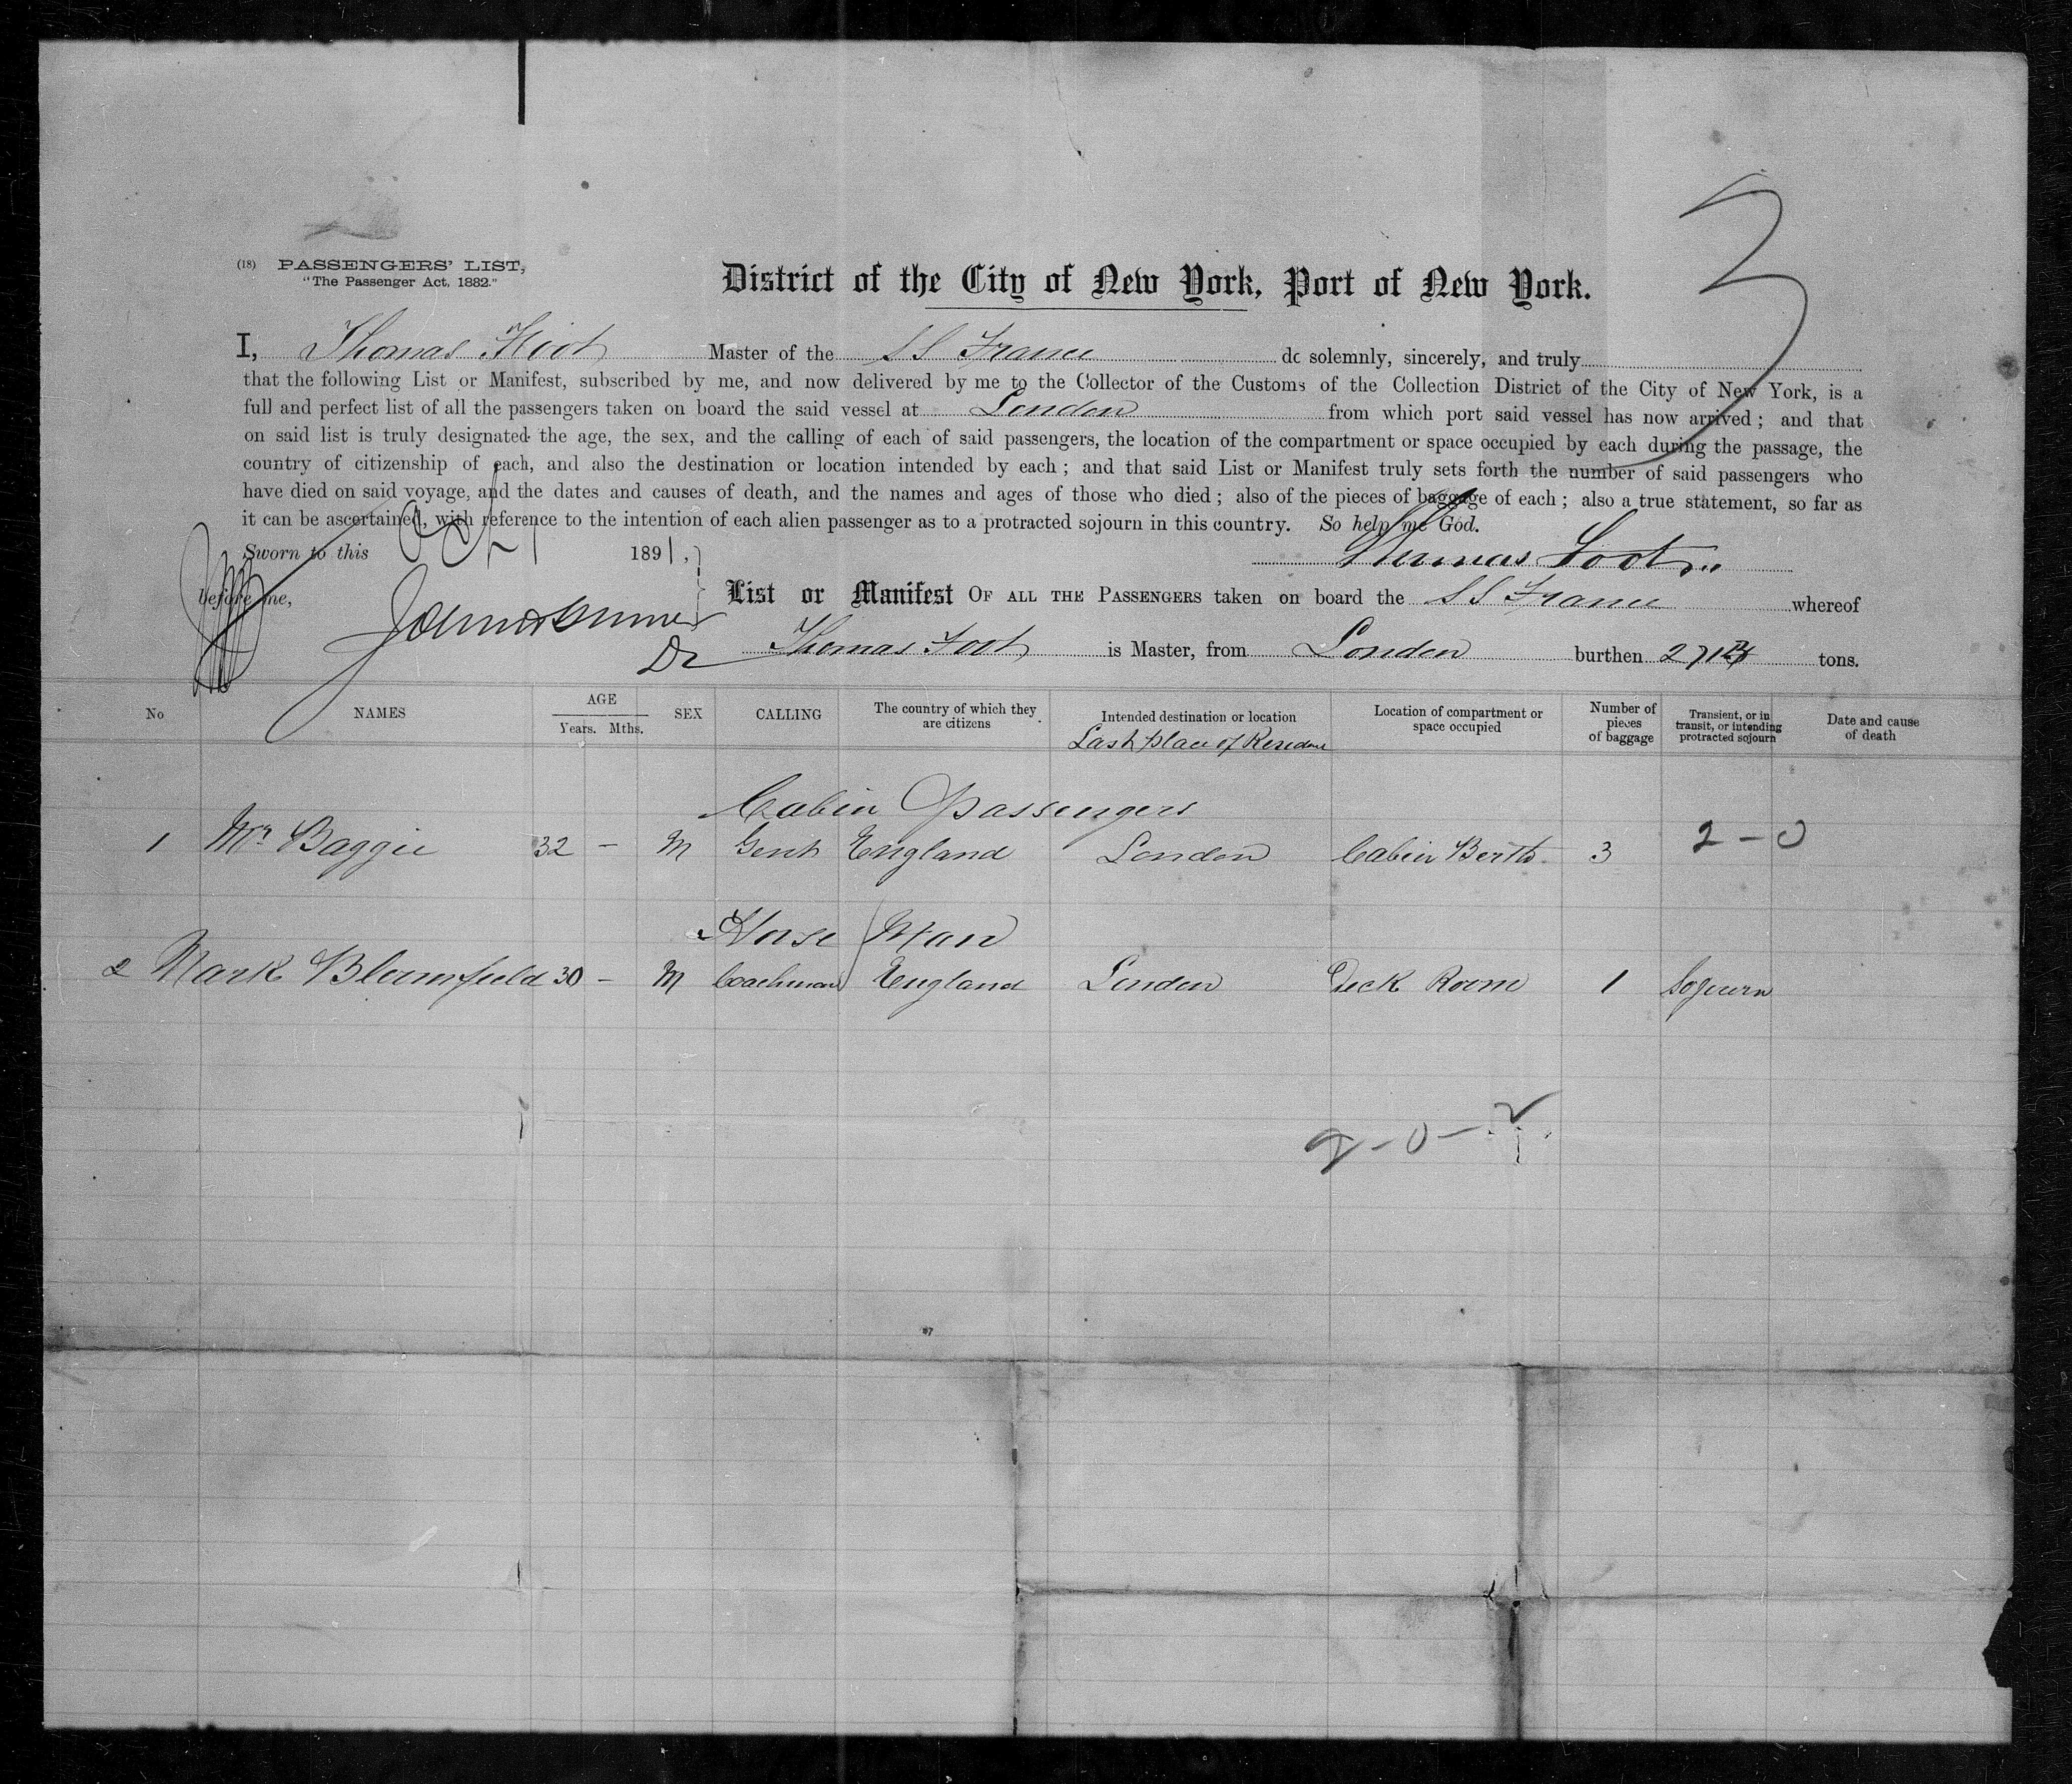 3
(18) PASSENGERS' LIST,
"The Passenger Act, 1882."
District of the City of New York, Port of New York.
I, Thomas Foot Master of the SS France do solemnly, sincerely, and truly
that the following List or Manifest, subscribed by me, and now delivered by me to the Collector of the Customs of the Collection District of the City of New York, is a
full and perfect list of all the passengers taken on board the said vessel at London from which port said vessel has now arrived; and that
on said list is truly designated the age, the sex, and the calling of each of said passengers, the location of the compartment or space occupied by each during the passage, the
country of citizenship of each, and also the destination or location intended by each; and that said List or Manifest truly sets forth the number of said passengers who
have died on said voyage, and the dates and causes of death, and the names and ages of those who died; also of the pieces of baggage of each; also a true statement, so far as
it can be ascertained, with reference to the intention of each alien passenger as to a protracted sojourn in this country. So help me God.
Sworn to this 1891,
Thomas Foot
before me,
List or Manifest OF ALL THE PASSENGERS taken on board the SS France whereof
Thomas Foot is Master, from London burthen tons.
No NAMES AGE Years. Mths. SEX CALLING The country of which they are citizens Intended destination or location Last place of Residence Location of compartment or space occupied Number of pieces of baggage Transient, or in transit, or intending protracted sojourn Date and cause of death
Cabin Passengers
1 Mr Baggie 32 – M Gent England London Cabin Berth 3 2 – 0
Horse Man
2 Mark Bloomfield 30 – M Coachman England London Deck Room 1 Sojourn
2 – 0 – 2